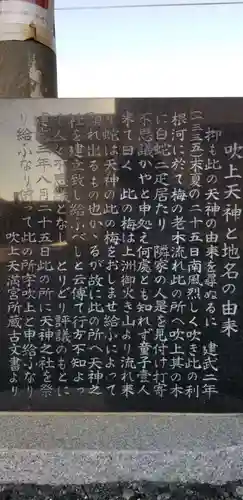 吹上天神と地名の由来
抑も此の天神の由来を尋ぬるに 建武二年
(一三三五)末夏の二十五日南風烈しく吹き此の利
根河に於て梅の老木流れ此の所へ吹上其の木
に白蛇二疋居たり 隣家の人是を見付け打寄
不思議かやと申処え何處とも知れず童子壹人
来て曰く 此の梅は上洲御火き山より流れ来
り蛇は天神の此の梅をおしませ給ふによって
れ出るもの也かゝるが故に此の所へ天神之
社を建立致し給ふべしと云傳て行方不知よっ
人々不思議となし とりどり評議のもとに
三年八月二十五日此の所に天神之社を祭
り給ふなり 依て此の所字吹上と申給ふなり
吹上天満宮所蔵古文書より